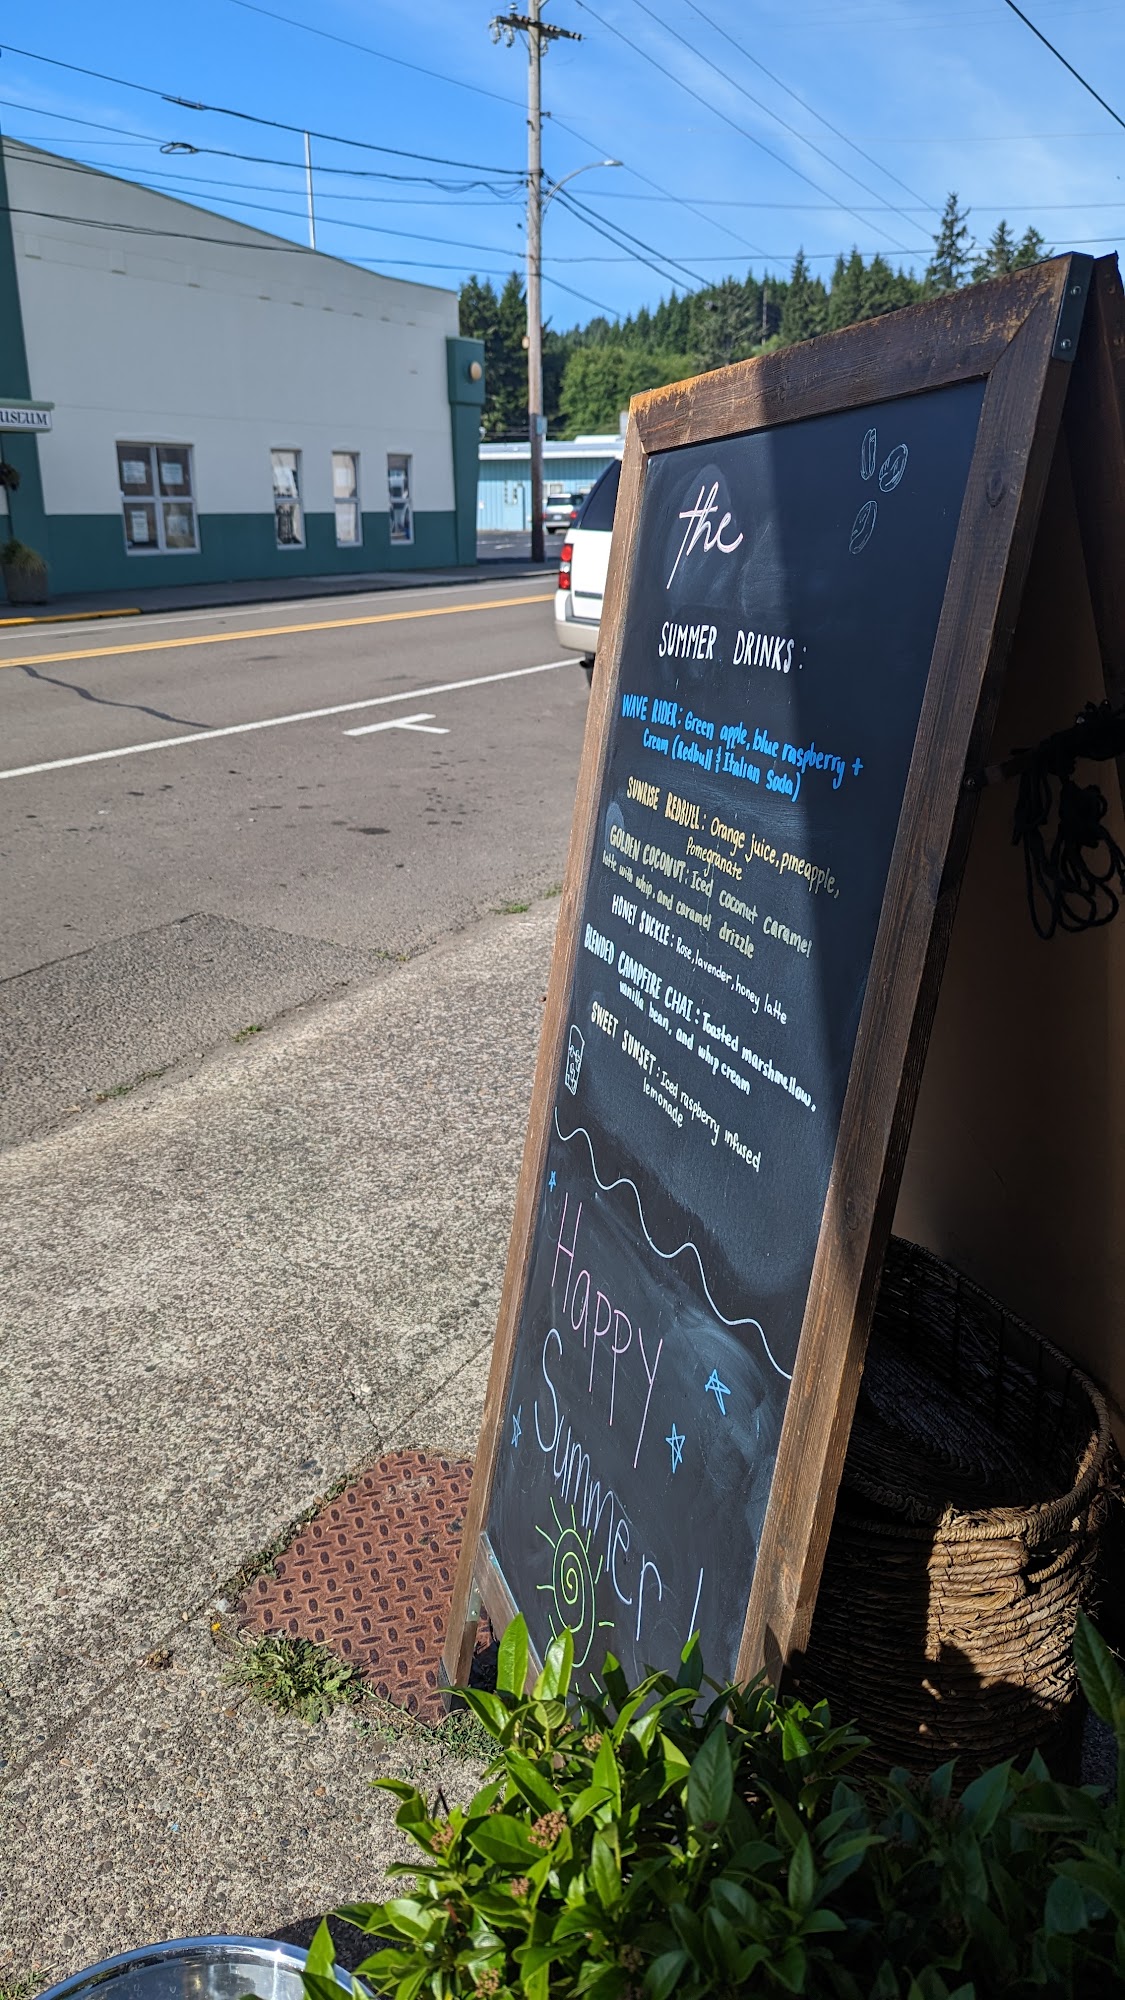 USEUM
the
SUMMER DRINKS:
WAVE RIDER: Green apple, blue raspberry +
Cream (Redbull & Italian Soda)
SUNRISE REDBULL: Orange juice, pineapple,
Pomegranate
GOLDEN COCONUT: Iced coconut caramel
latte with whip, and caramel drizzle
HONEY SUCKLE: Rose, lavender, honey latte
BLENDED CAMPFIRE CHAI: Toasted marshmellow.
vanilla bean, and whip cream
SWEET SUNSET: Iced raspberry infused
lemonade
Happy
Summer!